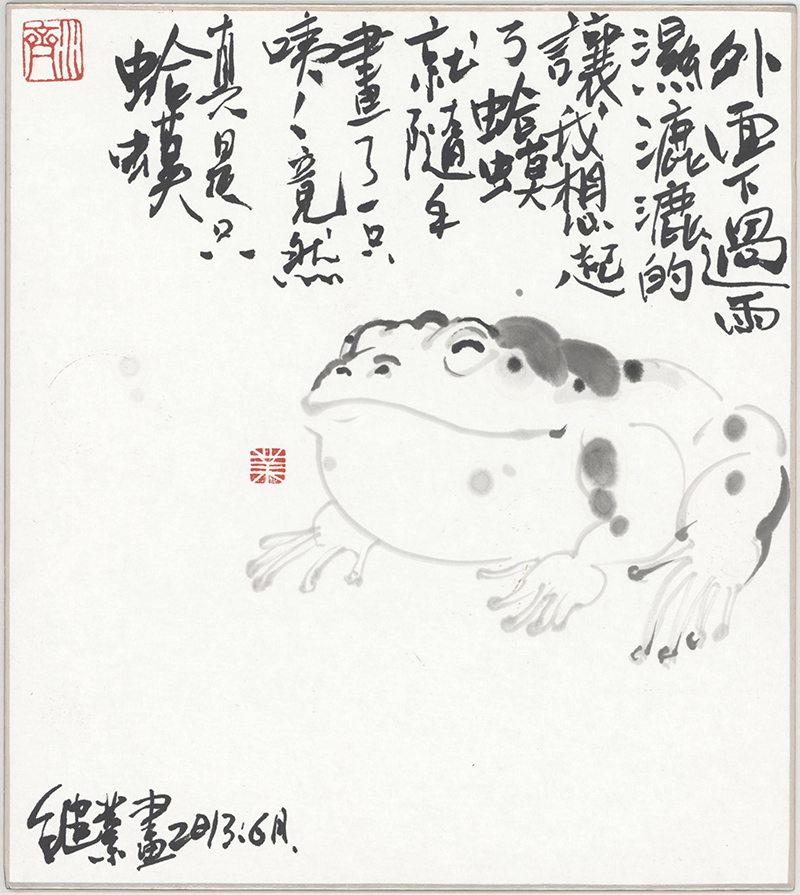 外面下過雨
濕漉漉的
讓我想起
了蛤蟆
就隨手
畫了一只
咦〻竟然
真是只
蛤蟆
業畫2013:6月.
業